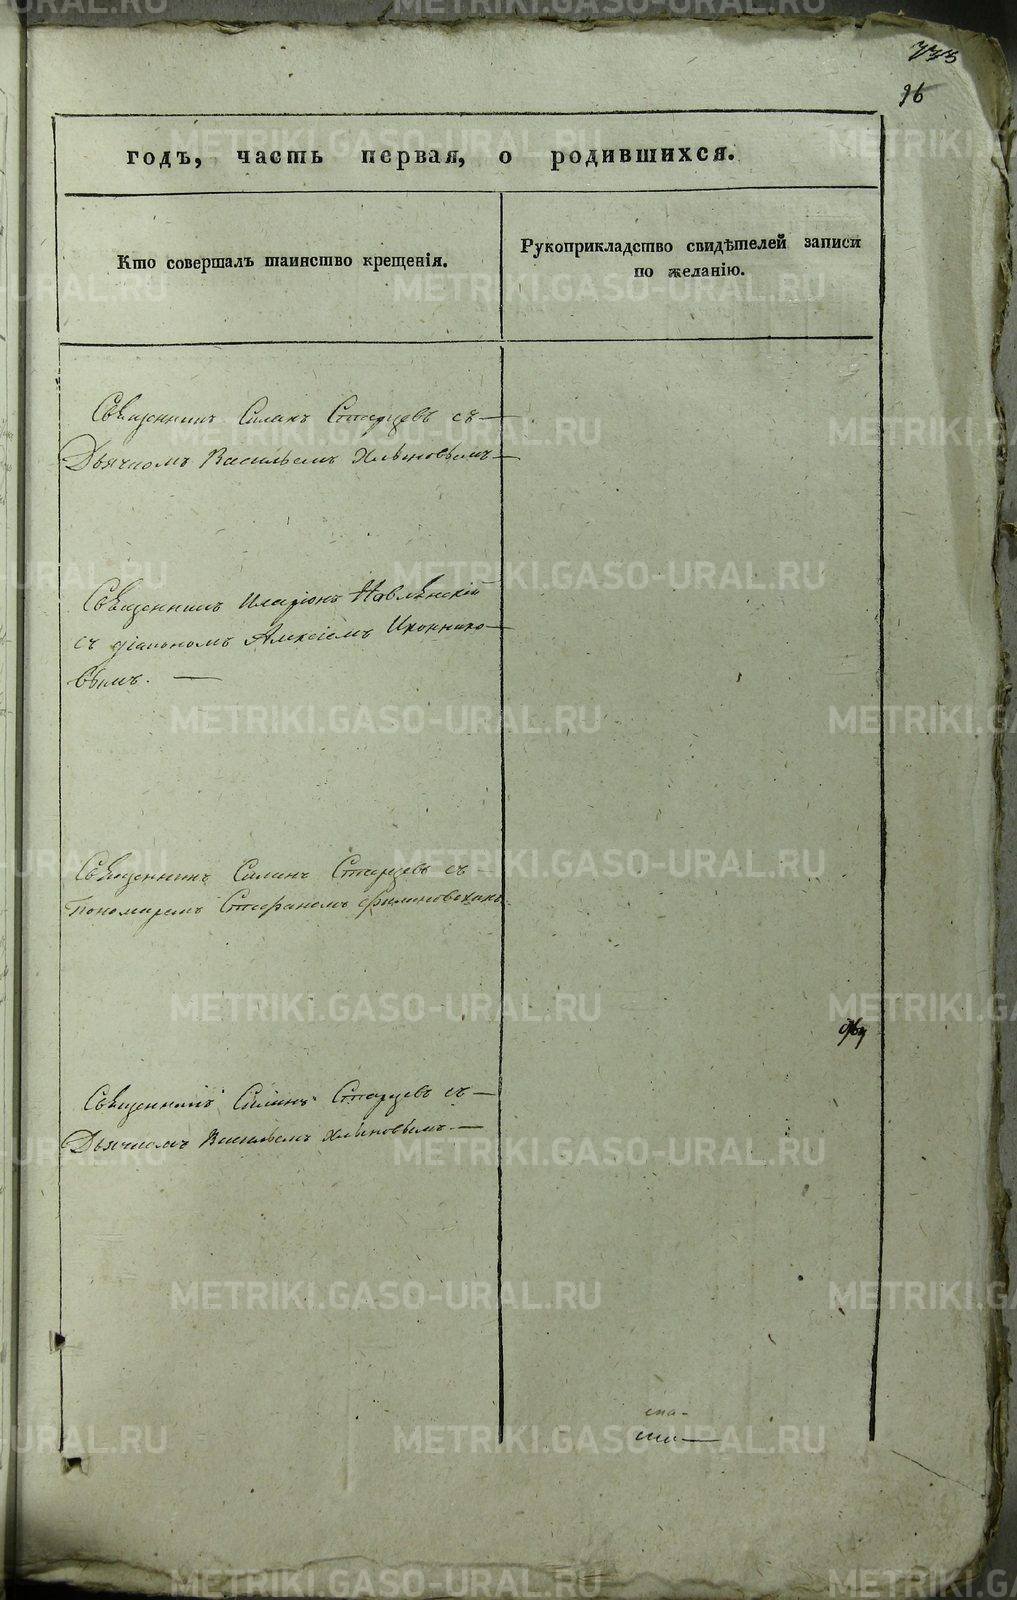 96
годъ, часть первая, о родившихся.
Кто совершалъ таинство крещенія.
Рукоприкладство свидѣтелей записи
по желанію.
Священникъ Силинъ Старцевъ съ
Дьячкомъ Васильемъ Хлыновымъ
Священникъ Иларіонъ
съ діакономъ Алексіемъ Иконнико-
вымъ.
Священникъ Силинъ Старцевъ съ
пономаремъ Стефаномъ
Священникъ Силинъ Старцевъ съ
Дьячкомъ Васильемъ Хлыновымъ.
METRIKI.GASO-URAL.RU